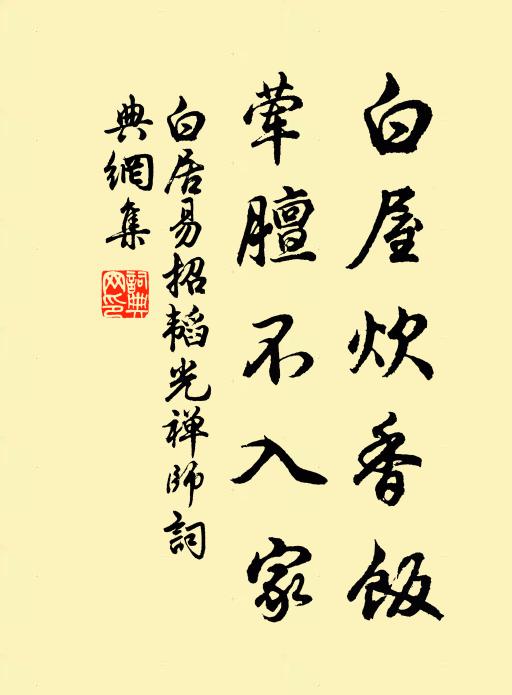 白屋炊香飯
葷膻不入家
白居易招韜光禅師詞
典網集
詞典
网印